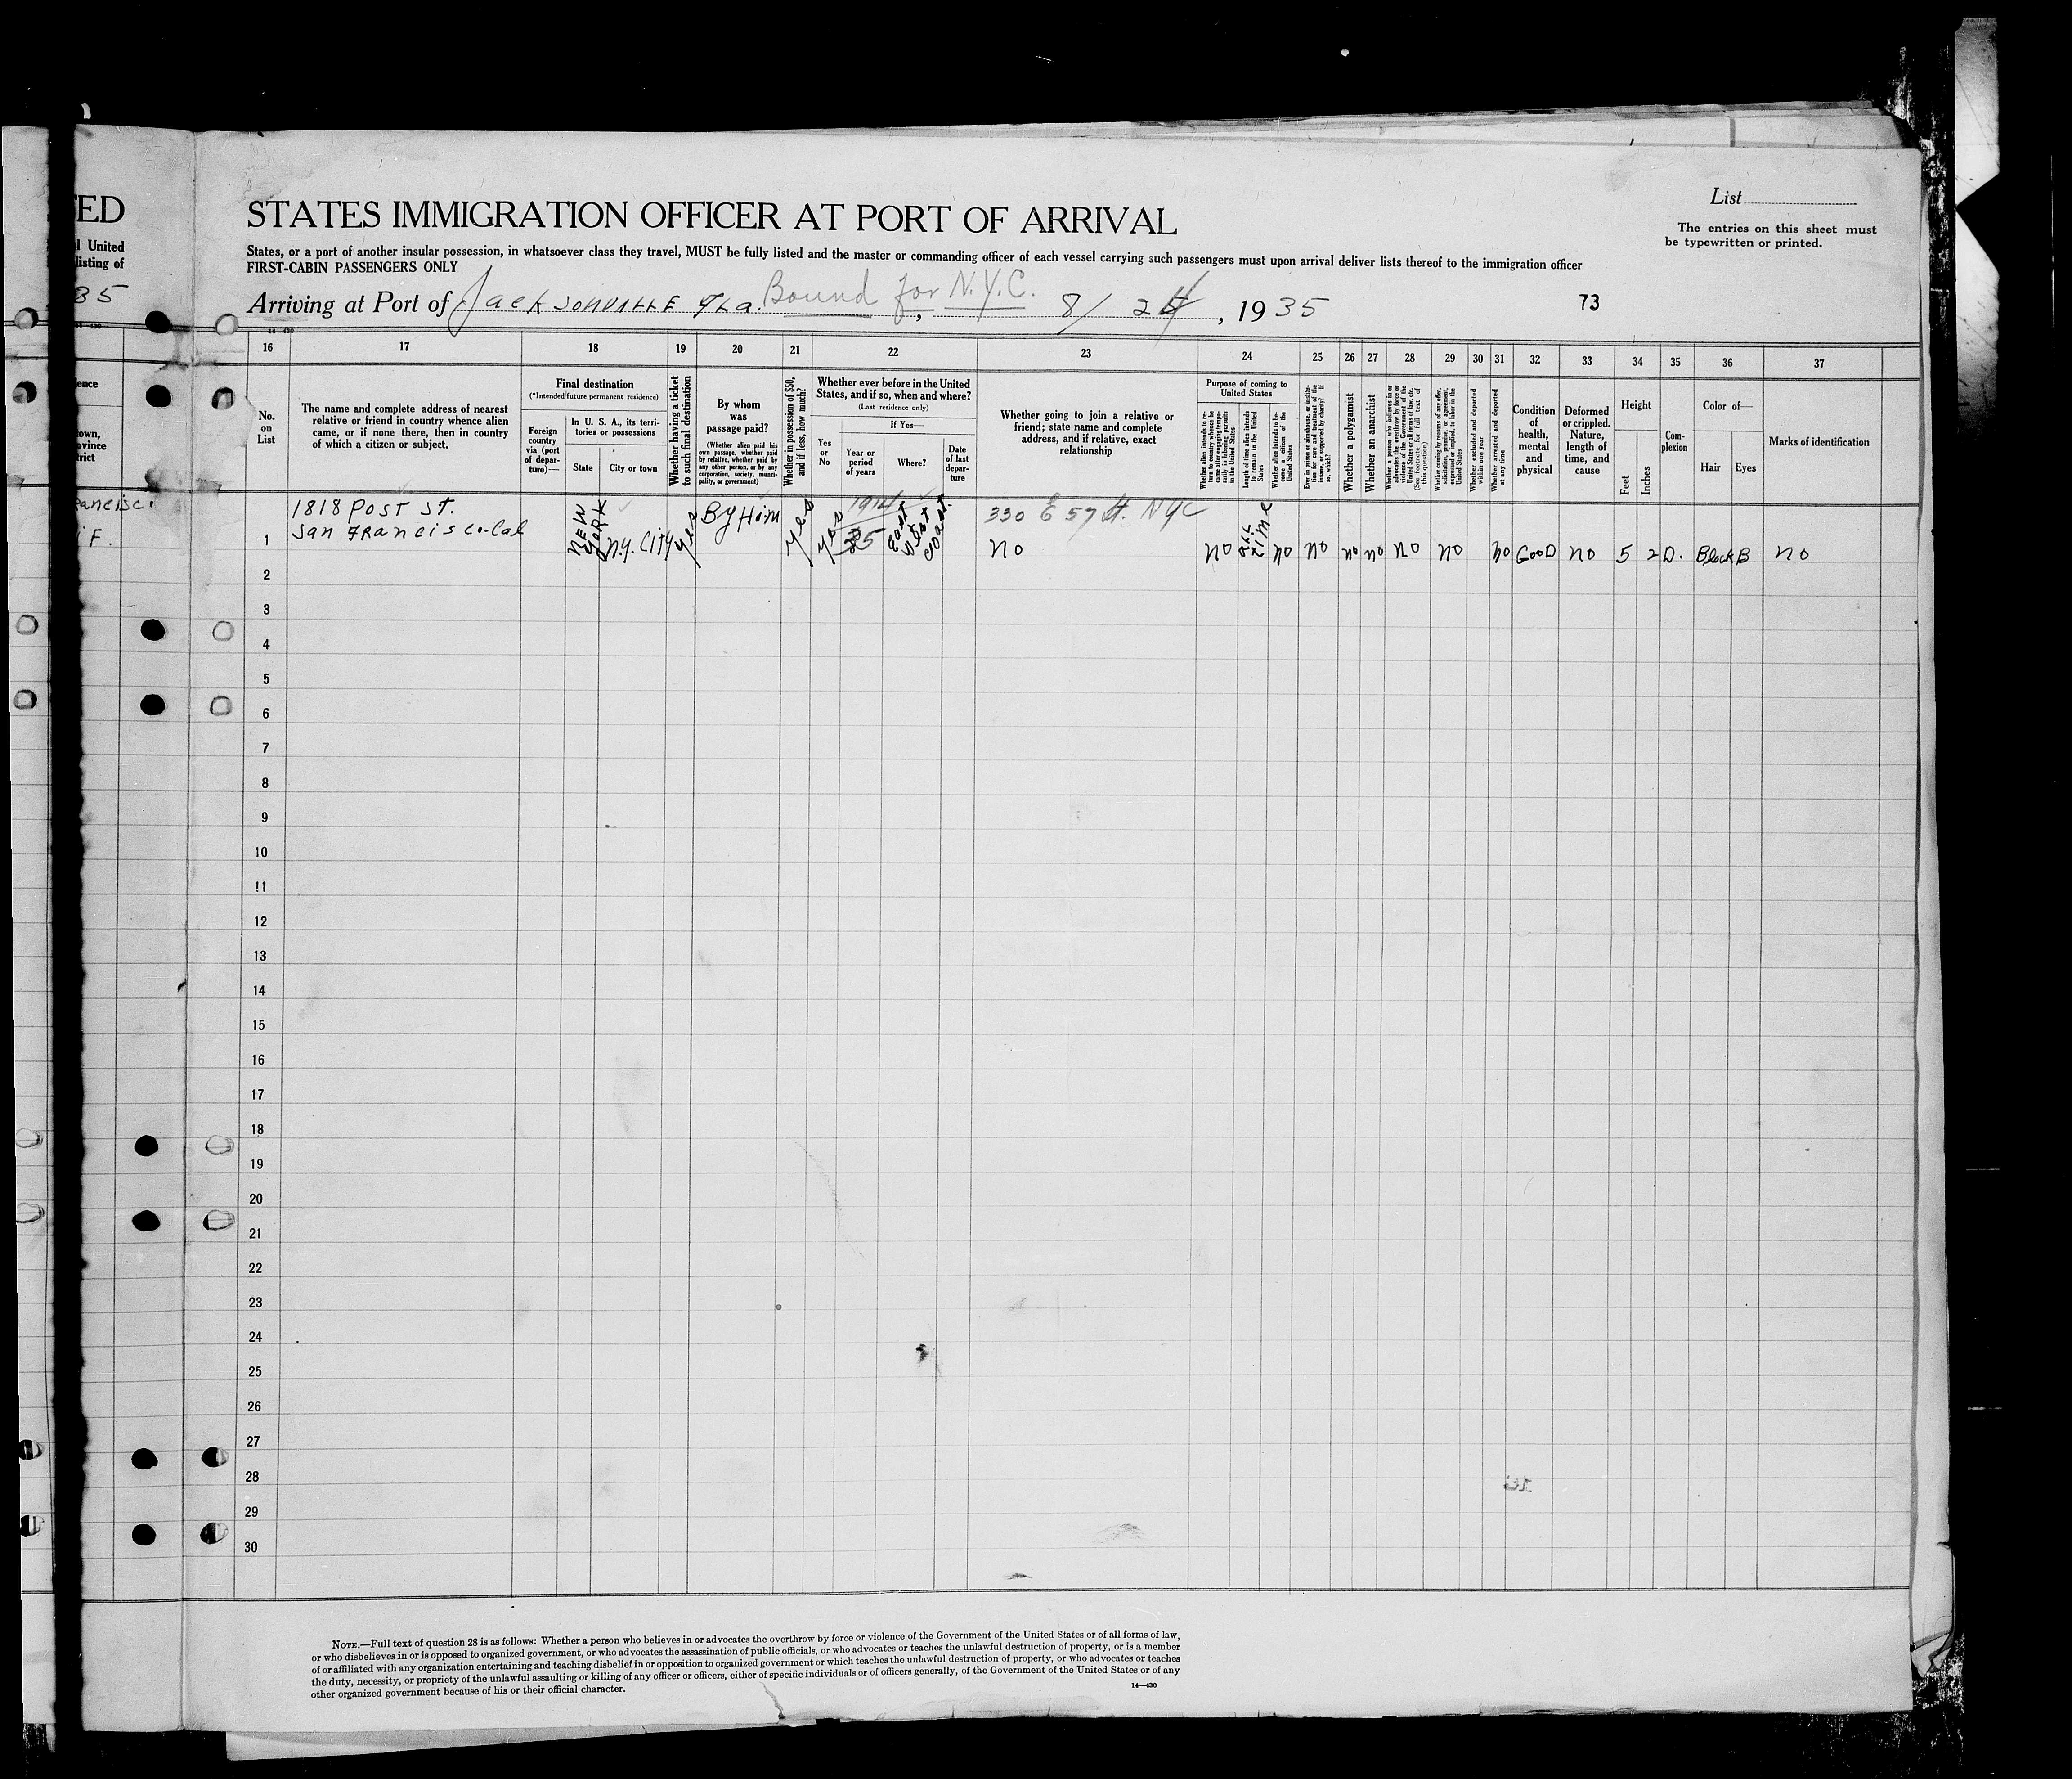 ED
l United
listing of
35
STATES IMMIGRATION OFFICER AT PORT OF ARRIVAL
List
The entries on this sheet must
be typewritten or printed.
States, or a port of another insular possession, in whatsoever class they travel, MUST be fully listed and the master or commanding officer of each vessel carrying such passengers must upon arrival deliver lists thereof to the immigration officer
FIRST-CABIN PASSENGERS ONLY
Arriving at Port of Jacksonville Fla. Bound for N.Y.C. 8/ 24, 1935
73
14-430
16 17 18 19 20 21 22 23 24 25 26 27 28 29 30 31 32 33 34 35 36 37
ence
town,
vince
trict
No.
on
List
The name and complete address of nearest
relative or friend in country whence alien
came, or if none there, then in country
of which a citizen or subject.
Final destination
(*Intended future permanent residence)
Foreign
country
via (port
of depar-
ture)—
In U. S. A., its terri-
tories or possessions
State
City or town
Whether having a ticket
to such final destination
By whom
was
passage paid?
(Whether alien paid his
own passage, whether paid
by relative, whether paid by
any other person, or by any
corporation, society, munici-
pality, or government)
Whether in possession of $50,
and if less, how much?
Whether ever before in the United
States, and if so, when and where?
(Last residence only)
Yes
or
No
If Yes—
Year or
period
of years
Where?
Date
of last
depar-
ture
Whether going to join a relative or
friend; state name and complete
address, and if relative, exact
relationship
Purpose of coming to
United States
Whether alien intends to re-
turn to country whence he
came after engaging tempo-
rarily in laboring pursuits
in the United States
Length of time alien intends
to remain in the United
States
Whether alien intends to be-
come a citizen of the
United States
Ever in prison or almshouse, or institu-
tion for care and treatment of the
insane, or supported by charity? If
so, which?
Whether a polygamist
Whether an anarchist
Whether a person who believes in or
advocates the overthrow by force or
violence of the Government of the
United States or all forms of law, etc.
(See footnote for full text of
this question)
Whether coming by reasons of any offer,
solicitation, promise, or agreement,
expressed or implied, to labor in the
United States
Whether excluded and deported
within one year
Whether arrested and deported
at any time
Condition
of
health,
mental
and
physical
Deformed
or crippled.
Nature,
length of
time, and
cause
Height
Feet
Inches
Com-
plexion
Color of—
Hair
Eyes
Marks of identification
1818 Post St.
San Francisco-Cal
1
NEW
YORK
N.Y. City
yes
By Him
yes
yes
1914
35
East
West
Coast
330 E 57 St. NYC
no
no
time
no
no
no
no
no
no
no
Good
no
5
2
D.
Black
B
no
2
3
4
5
6
7
8
9
10
11
12
13
14
15
16
17
18
19
20
21
22
23
24
25
26
27
28
29
30
NOTE.—Full text of question 28 is as follows: Whether a person who believes in or advocates the overthrow by force or violence of the Government of the United States or of all forms of law,
or who disbelieves in or is opposed to organized government, or who advocates the assassination of public officials, or who advocates or teaches the unlawful destruction of property, or is a member
of or affiliated with any organization entertaining and teaching disbelief in or opposition to organized government or which teaches the unlawful destruction of property, or who advocates or teaches
the duty, necessity, or propriety of the unlawful assaulting or killing of any officer or officers, either of specific individuals or of officers generally, of the Government of the United States or of any
other organized government because of his or their official character.
14—430